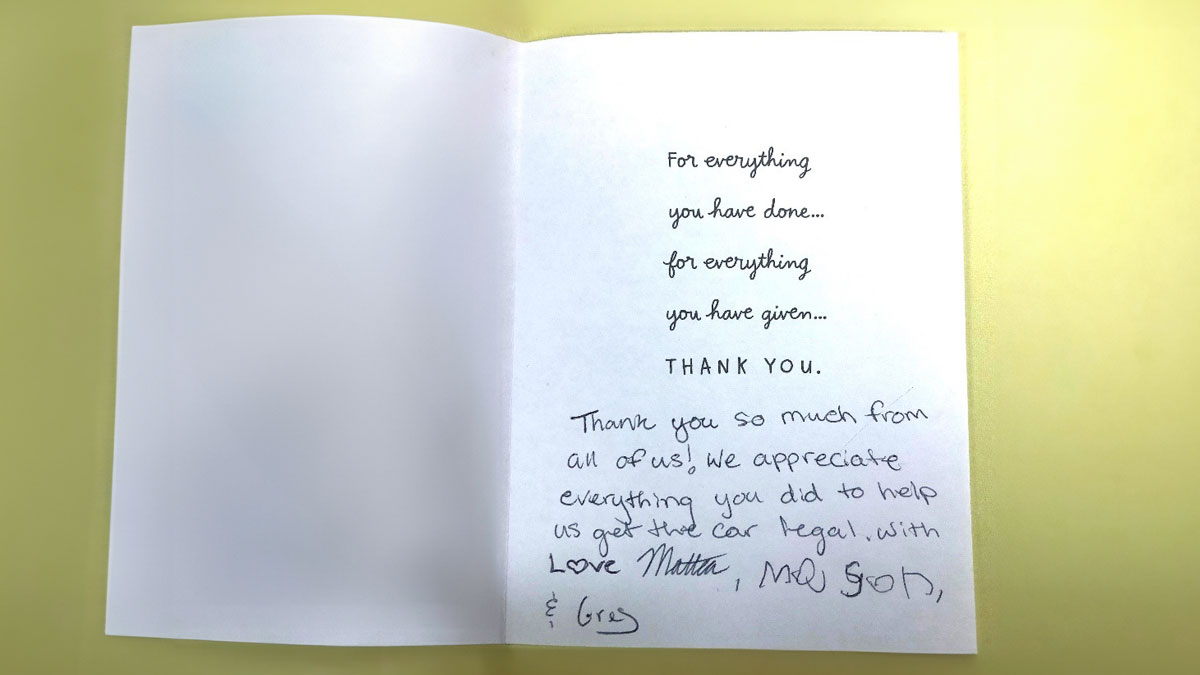 For everything
you have done...
for everything
you have given...
THANK YOU.
Thank you so much from
all of us! We appreciate
everything you did to help
us get the car legal. With
Love
& Greg